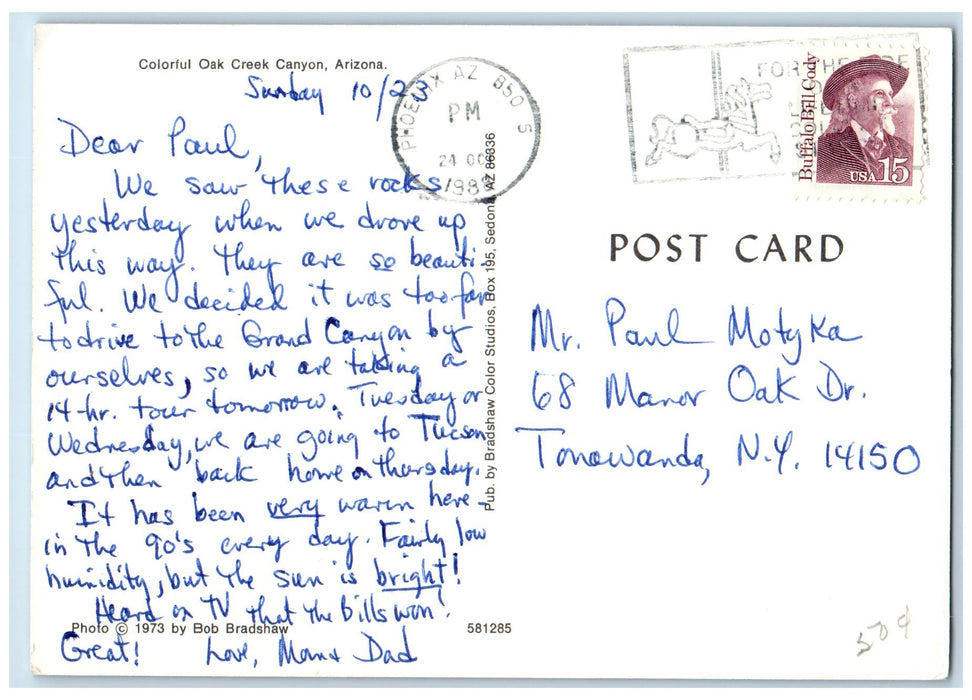 Colorful Oak Creek Canyon, Arizona.
Sunday 10/23
Dear Paul,
We saw these rocks
yesterday when we drove up
this way. They are so beauti-
ful. We decided it was too far
to drive to the Grand Canyon by
ourselves, so we are taking a
14-hr. tour tomorrow. Tuesday or
Wednesday, we are going to Tucson
and then back home on Thursday.
It has been very warm here -
in the 90's every day. Fairly low
humidity, but the sun is bright!
Heard on TV that the Bills won!
Great! Love, Mom & Dad
Photo © 1973 by Bob Bradshaw
581285
Pub. by Bradshaw Color Studios, Box 195, Sedona, AZ 86336
PHOENIX AZ 850 5
PM
24 OC
198
FOR THE
Buffalo Bill Cody
USA 15
POST CARD
Mr. Paul Motyka
68 Manor Oak Dr.
Tonowanda, N.Y. 14150
50¢